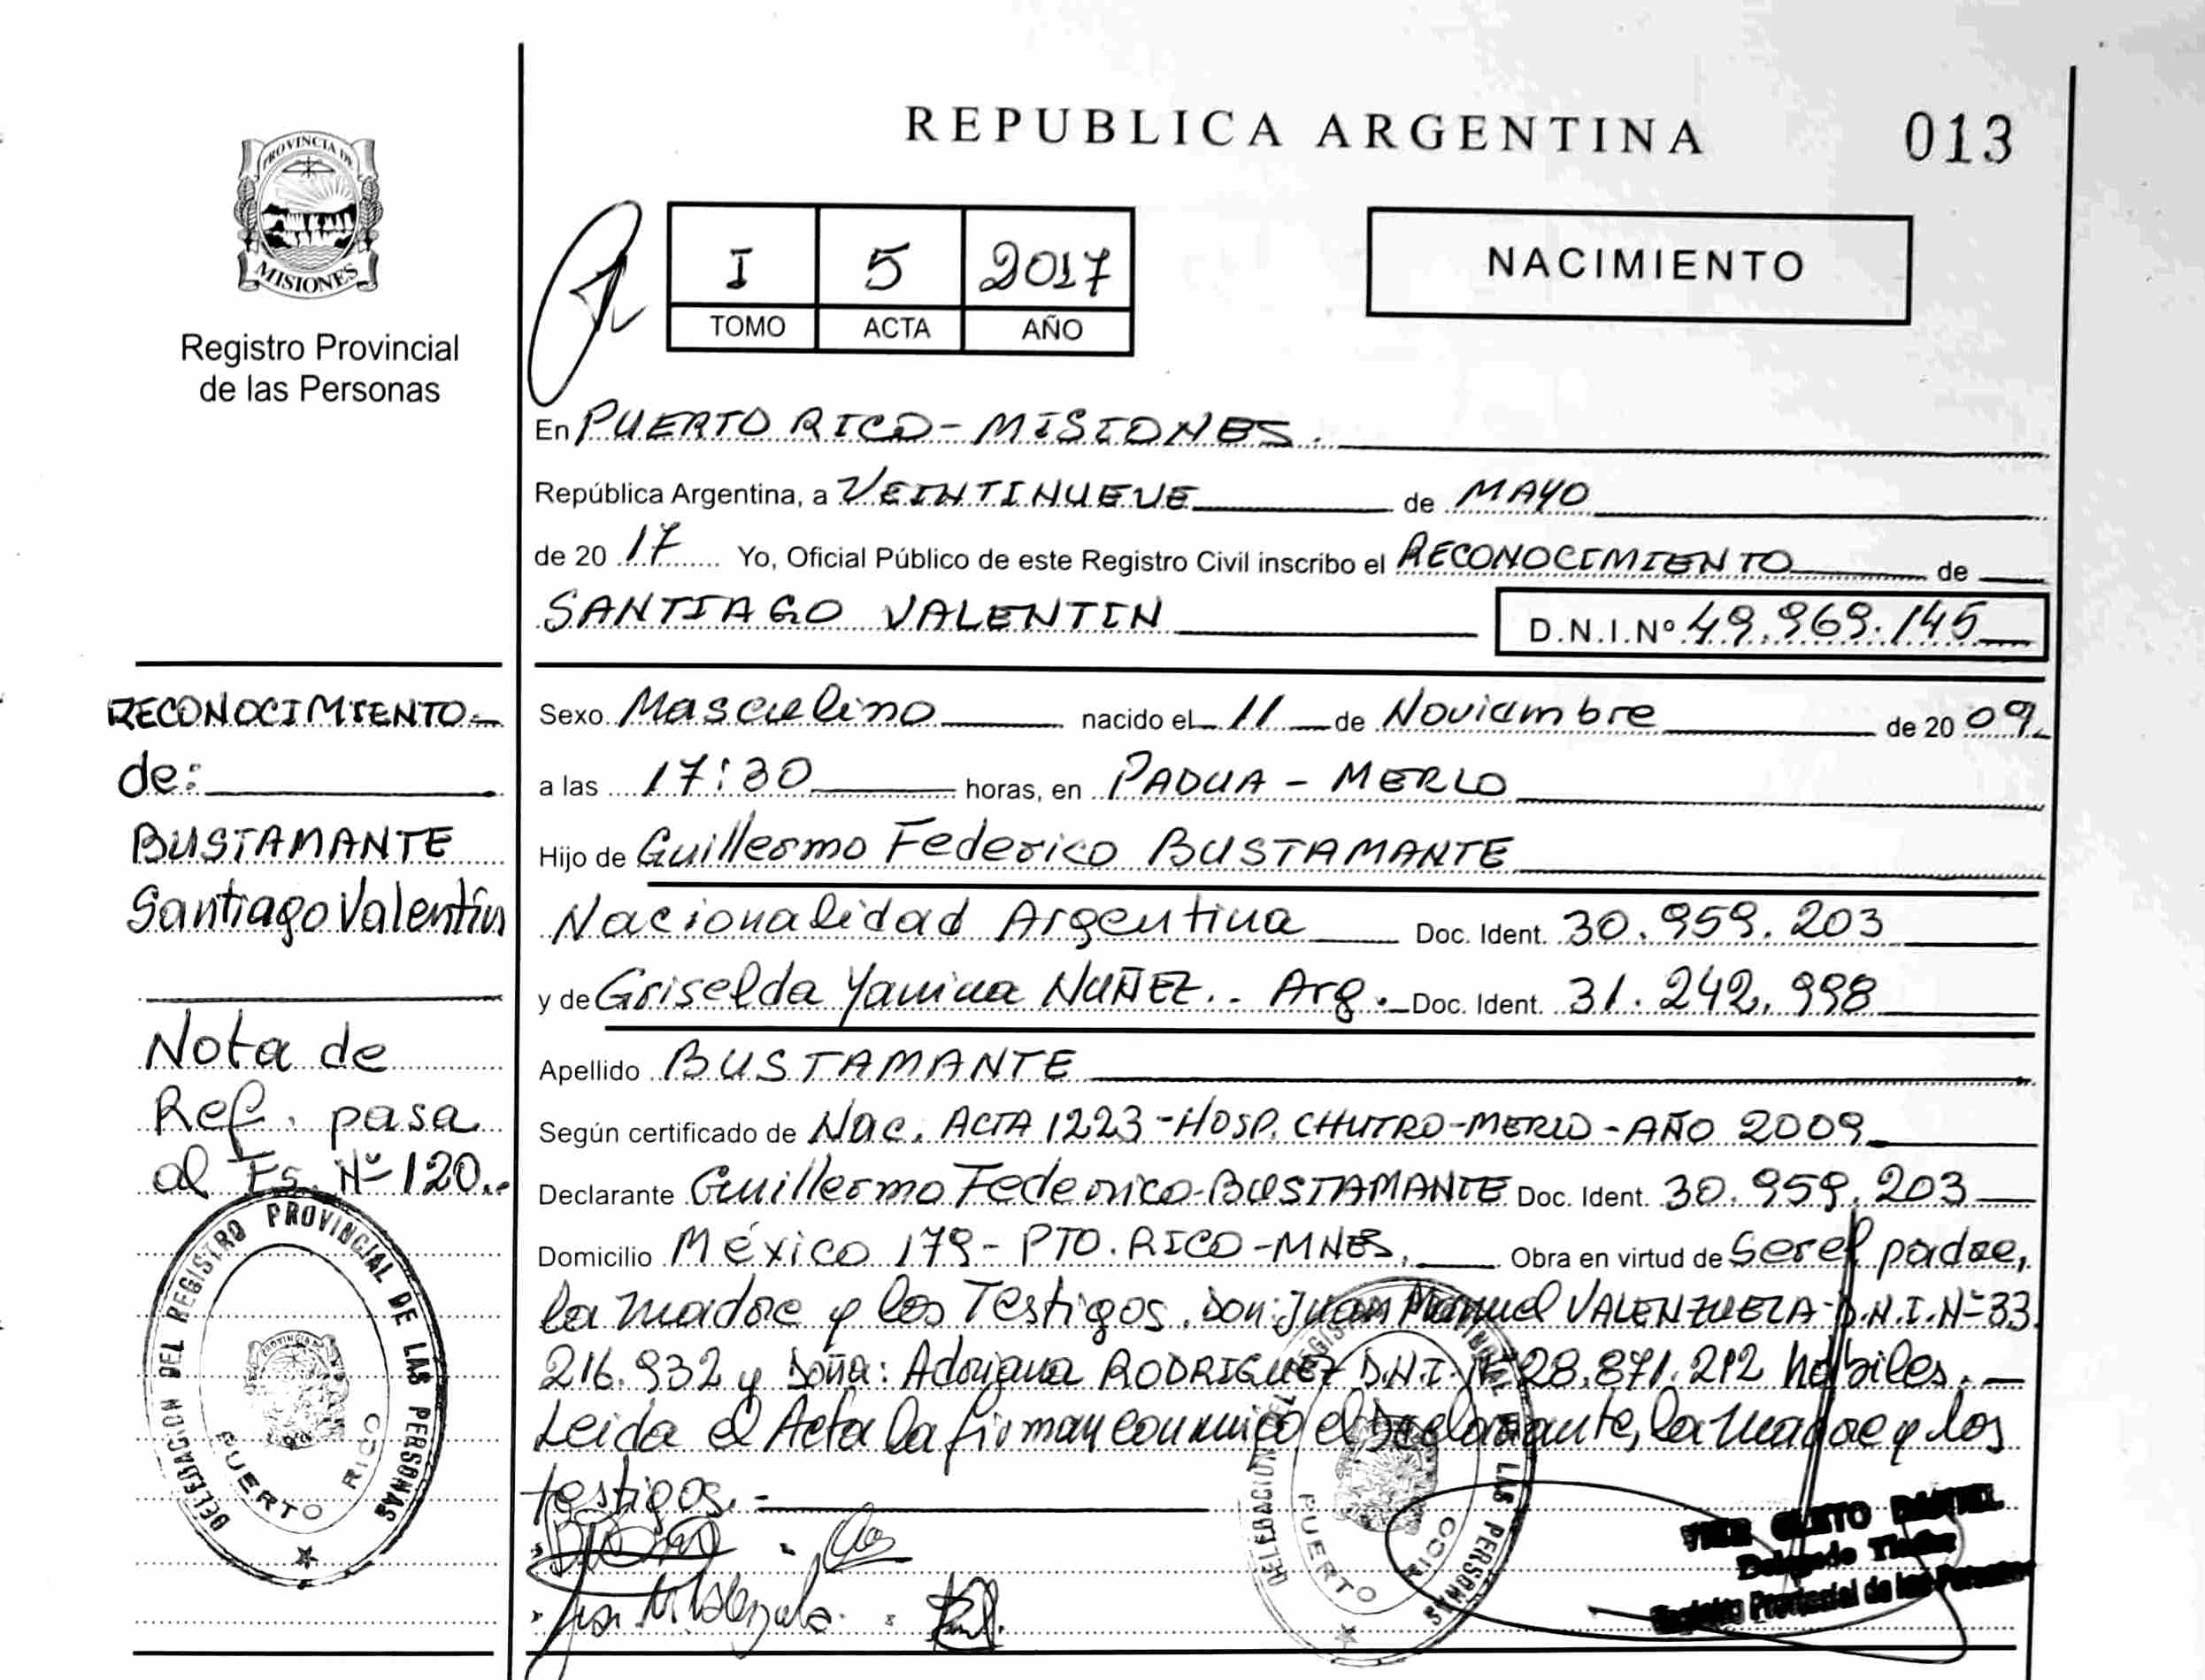 REPUBLICA ARGENTINA
013
PROVINCIA DE
MISIONES
Registro Provincial
de las Personas
I 5 2017
TOMO ACTA AÑO
NACIMIENTO
En PUERTO RICO - MISIONES.
República Argentina, a VEINTINUEVE de MAYO
de 20 17 Yo, Oficial Público de este Registro Civil inscribo el RECONOCIMIENTO de
SANTIAGO VALENTIN D.N.I. Nº 49.969.145
RECONOCIMIENTO
de:
BUSTAMANTE
Santiago Valentín
Nota de
Ref. pasa
al Fs. Nº 120..
Sexo Masculino nacido el 11 de Noviembre de 20 09
a las 17:30 horas, en PADUA - MERLO
Hijo de Guillermo Federico BUSTAMANTE
Nacionalidad Argentina Doc. Ident. 30.959.203
y de Griselda Yanina NUÑEZ.- Arg. Doc. Ident. 31.242.998
Apellido BUSTAMANTE
Según certificado de Nac. ACTA 1223 - HOSP. CHUTRO - MERLO - AÑO 2009
Declarante Guillermo Federico BUSTAMANTE Doc. Ident. 30.959.203
Domicilio México 179 - PTO. RICO - MNES. Obra en virtud de Ser el padre,
la madre y los Testigos. Don: Juan Manuel VALENZUELA - D.N.I. Nº 33.
216.932 y Doña: Adriana RODRIGUEZ D.N.I. Nº 28.871.212 hábiles.-
Leida el Acta la firman conmigo el Declarante, la madre y los
testigos.-
DELEGACION DEL REGISTRO PROVINCIAL DE LAS PERSONAS
PUERTO RICO
DELEGACION DEL REGISTRO PROVINCIAL DE LAS PERSONAS
PUERTO RICO
Delegado Titular
Registro Provincial de las Personas